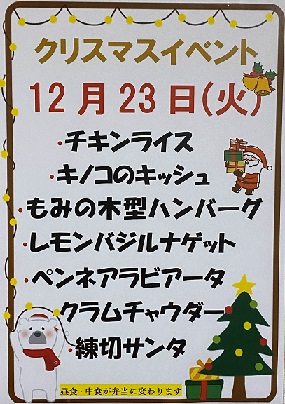 クリスマスイベント
12月23日(火)
・チキンライス
・キノコのキッシュ
・もみの木型ハンバーグ
・レモンバジルナゲット
・ペンネアラビアータ
・クラムチャウダー
・練切サンタ
昼食・中食が弁当に変わります